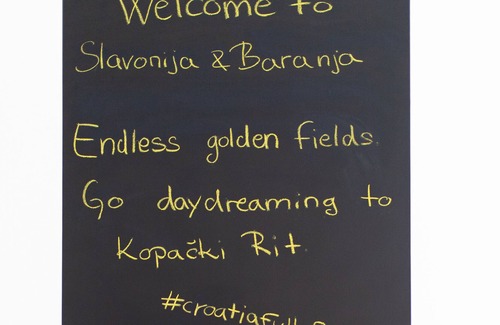 Welcome to
Slavonija & Baranja
Endless golden fields.
Go daydreaming to
Kopački Rit.